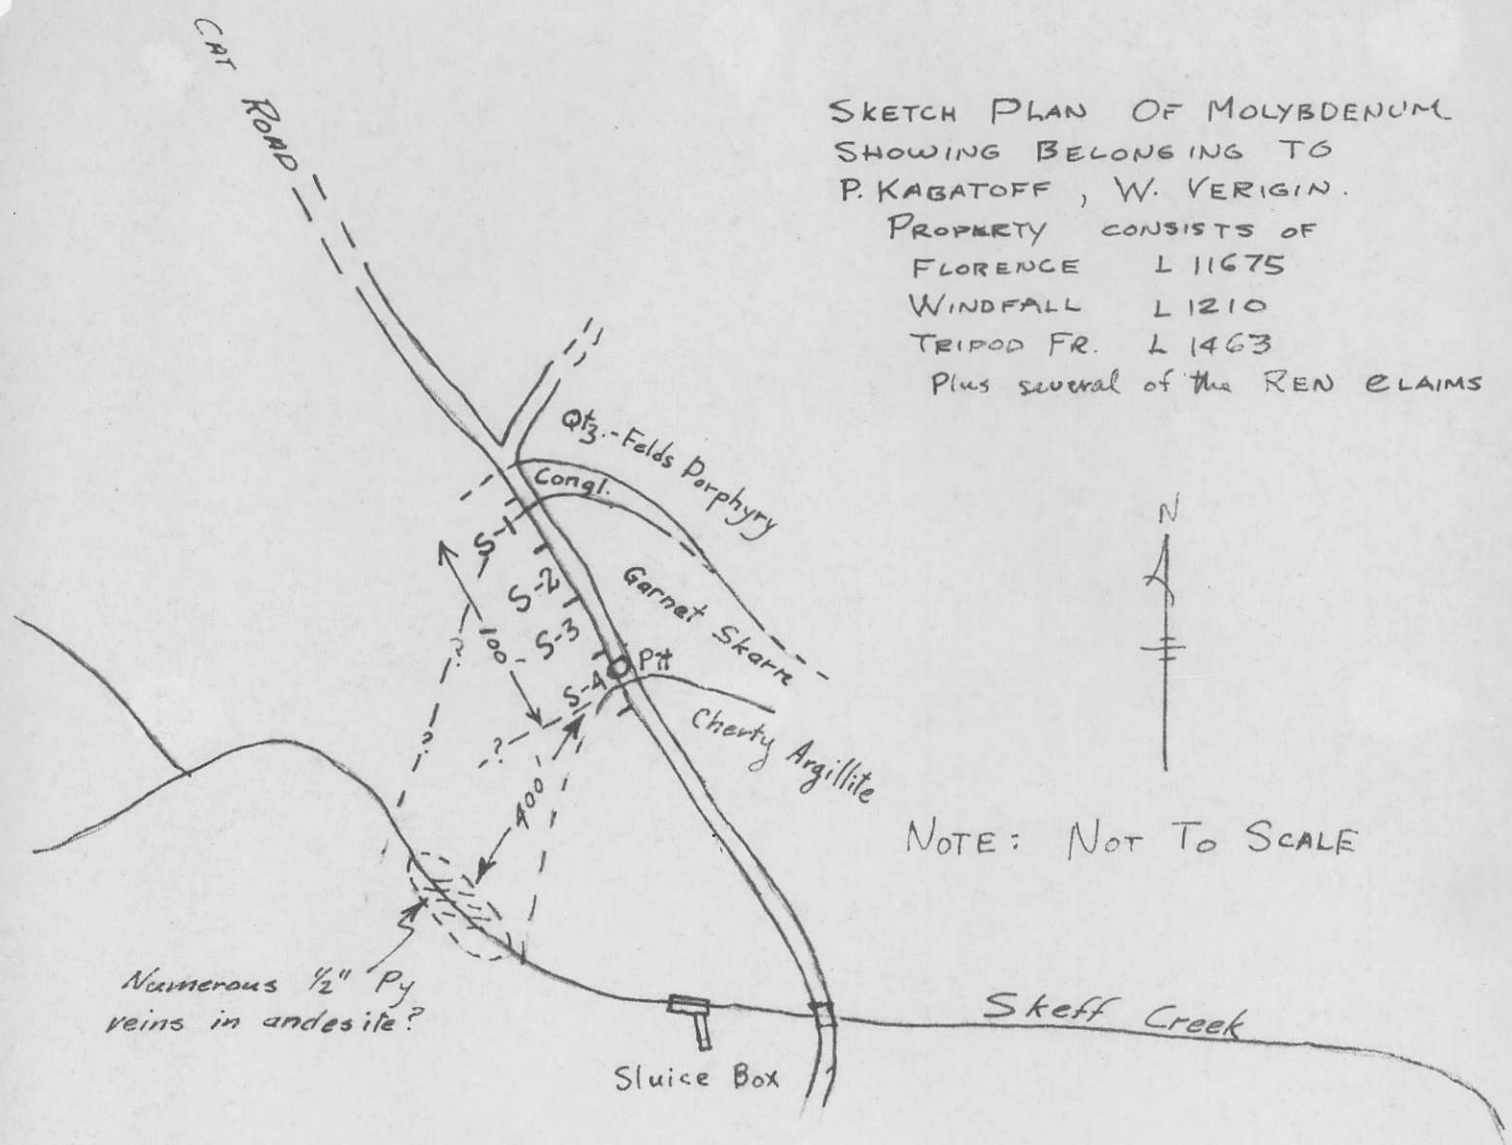 CAT ROAD
SKETCH PLAN OF MOLYBDENUM
SHOWING BELONGING TO
P. KABATOFF , W. VERIGIN.
PROPERTY CONSISTS OF
FLORENCE L 11675
WINDFALL L 1210
TRIPOD FR. L 1463
Plus several of the REN CLAIMS
Qtz.-Felds Porphyry
Congl.
N
S-1
S-2
S-3
S-4
Garnet Skarn
Pit
100'
?
?
?
400'
Cherty Argillite
NOTE: NOT TO SCALE
Numerous 1/2" Py
veins in andesite?
Skeff Creek
Sluice Box